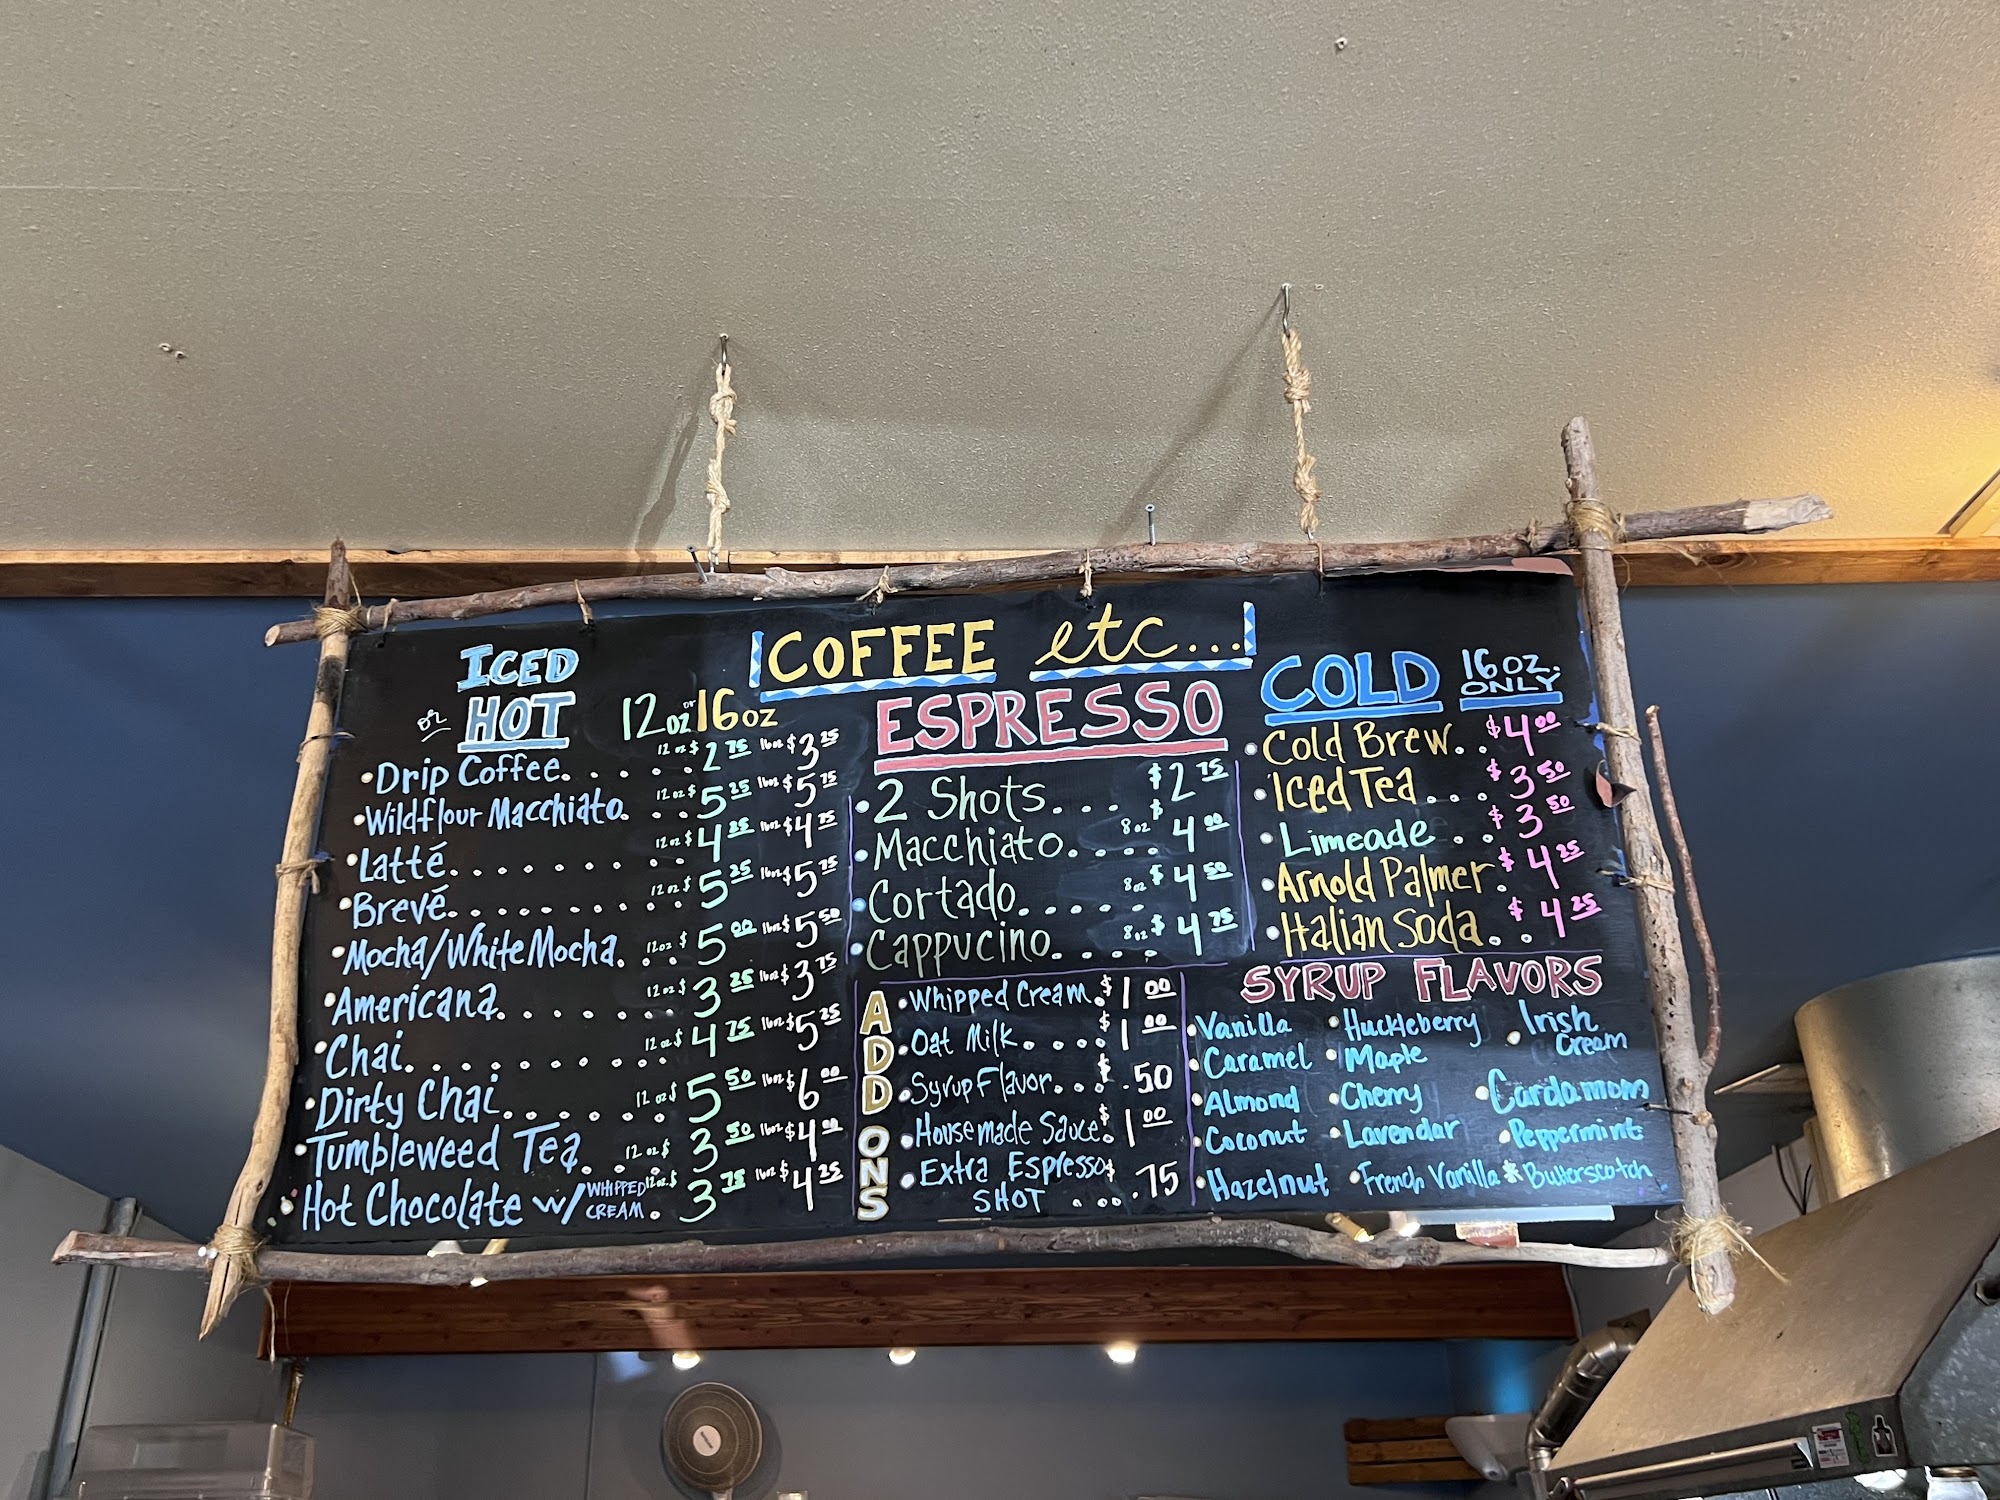 COFFEE etc...
ICED
or HOT
12oz or 16oz
Drip Coffee...... 12oz $2 75 16oz $3 25
Wildflour Macchiato... 12oz $5 25 16oz $5 75
Latté........ 12oz $4 25 16oz $4 75
Brevé......... 12oz $5 25 16oz $5 75
Mocha/White Mocha... 12oz $5 00 16oz $5 50
Americana....... 12oz $3 25 16oz $3 75
Chai......... 12oz $4 75 16oz $5 25
Dirty Chai...... 12oz $5 50 16oz $6 00
Tumbleweed Tea.... 12oz $3 50 16oz $4 00
Hot Chocolate w/ WHIPPED CREAM. 12oz $3 75 16oz $4 25
ESPRESSO
2 Shots.... $2 75
Macchiato.... 8oz $4 00
Cortado..... 8oz $4 50
Cappucino.... 8oz $4 75
ADD ONS
Whipped Cream. $1 00
Oat Milk.... $1 00
Syrup Flavor... $.50
Housemade Sauce. $1 00
Extra Espresso $
SHOT ....75
COLD 16oz. ONLY
Cold Brew.. $4 00
Iced Tea... $3 50
Limeade.. $3 50
Arnold Palmer. $4 25
Italian Soda.. $4 25
SYRUP FLAVORS
Vanilla
Caramel
Almond
Coconut
Hazelnut
Huckleberry
Maple
Cherry
Lavendar
French Vanilla
Irish
Cream
Cardamom
Peppermint
Butterscotch